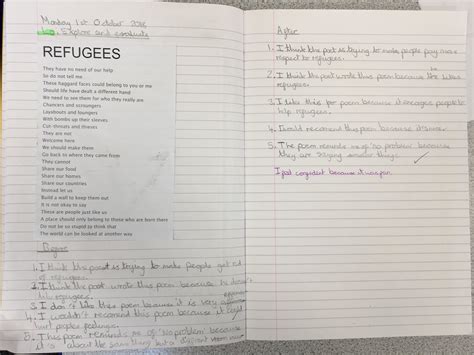 Monday 1st October 2018
L.O. Explore and evaluate
REFUGEES
They have no need of our help
So do not tell me
These haggard faces could belong to you or me
Should life have dealt a different hand
We need to see them for who they really are
Chancers and scroungers
Layabouts and loungers
With bombs up their sleeves
Cut-throats and thieves
They are not
Welcome here
We should make them
Go back to where they came from
They cannot
Share our food
Share our homes
Share our countries
Instead let us
Build a wall to keep them out
It is not okay to say
These are people just like us
A place should only belong to those who are born there
Do not be so stupid to think that
The world can be looked at another way
Before
1. I think the poet is trying to make people get rid
of refugees.
2. I think the poet wrote this poem because he doesn't
like refugees.
3. I don't like this poem because it is very
4. I wouldn't recommend this poem because it could
hurt people feelings.
5. This poem reminds me of 'No problem' because
it's about the same thing but a
After
1. I think the poet is trying to make people pay more
respect to refugees.
2. I think the poet wrote this poem because he likes
refugees.
3. I like this poem because it encourages people to
help refugees.
4. I would recomend this poem because
5. The poem reminds me of 'no problem' because
they are saying similar things.
I feel confident because it was fun.